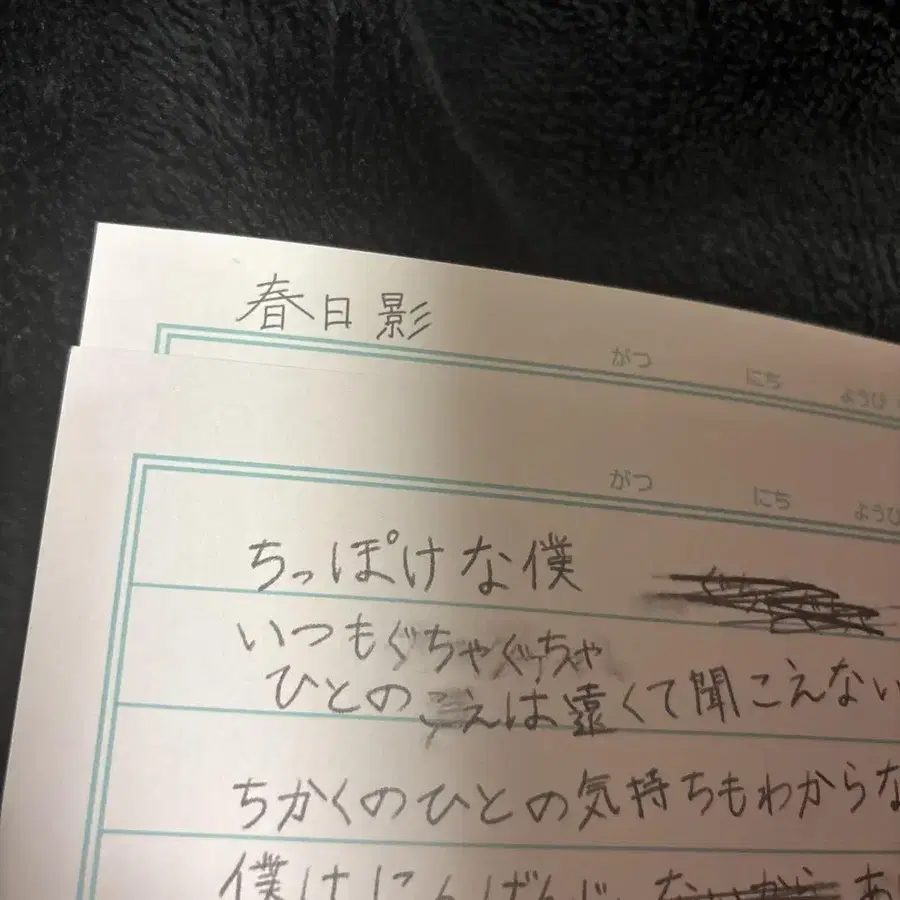 春日影
がつ にち ようび
がつ にち ようび
ちっぽけな僕
いつもぐちゃぐちゃ
ひとのこえは遠くて聞こえない
ちかくのひとの気持ちもわからな
僕はにんげんじゃないから あ